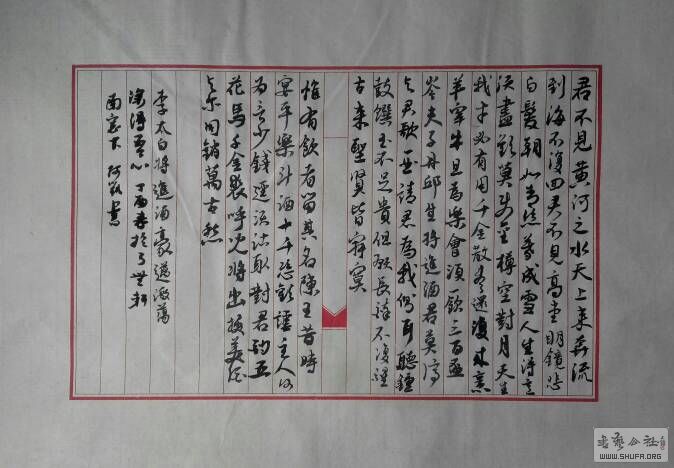 君不見黄河之水天上来奔流
到海不復回君不見高堂明鏡悲
白髮朝如青絲暮成雪人生得意
須盡歡莫使金樽空對月天生
我才必有用千金散盡還復来烹
羊宰牛且為樂會須一飲三百盃
岑夫子丹邱生将進酒君莫停
與君歌一曲請君為我側耳聽鐘
鼓饌玉不足貴但願長醉不復醒
古来聖賢皆寂寞
惟有飲者留其名陳王昔時
宴平樂斗酒十千恣歡謔主人何
為言少錢逕須沽取對君酌五
花馬千金裘呼児将出換美酒
與尔同銷萬古愁
李太白将進酒豪邁激蕩
深得吾心丁酉春於
西窓下書
书艺公社
WWW.SHUFA.ORG